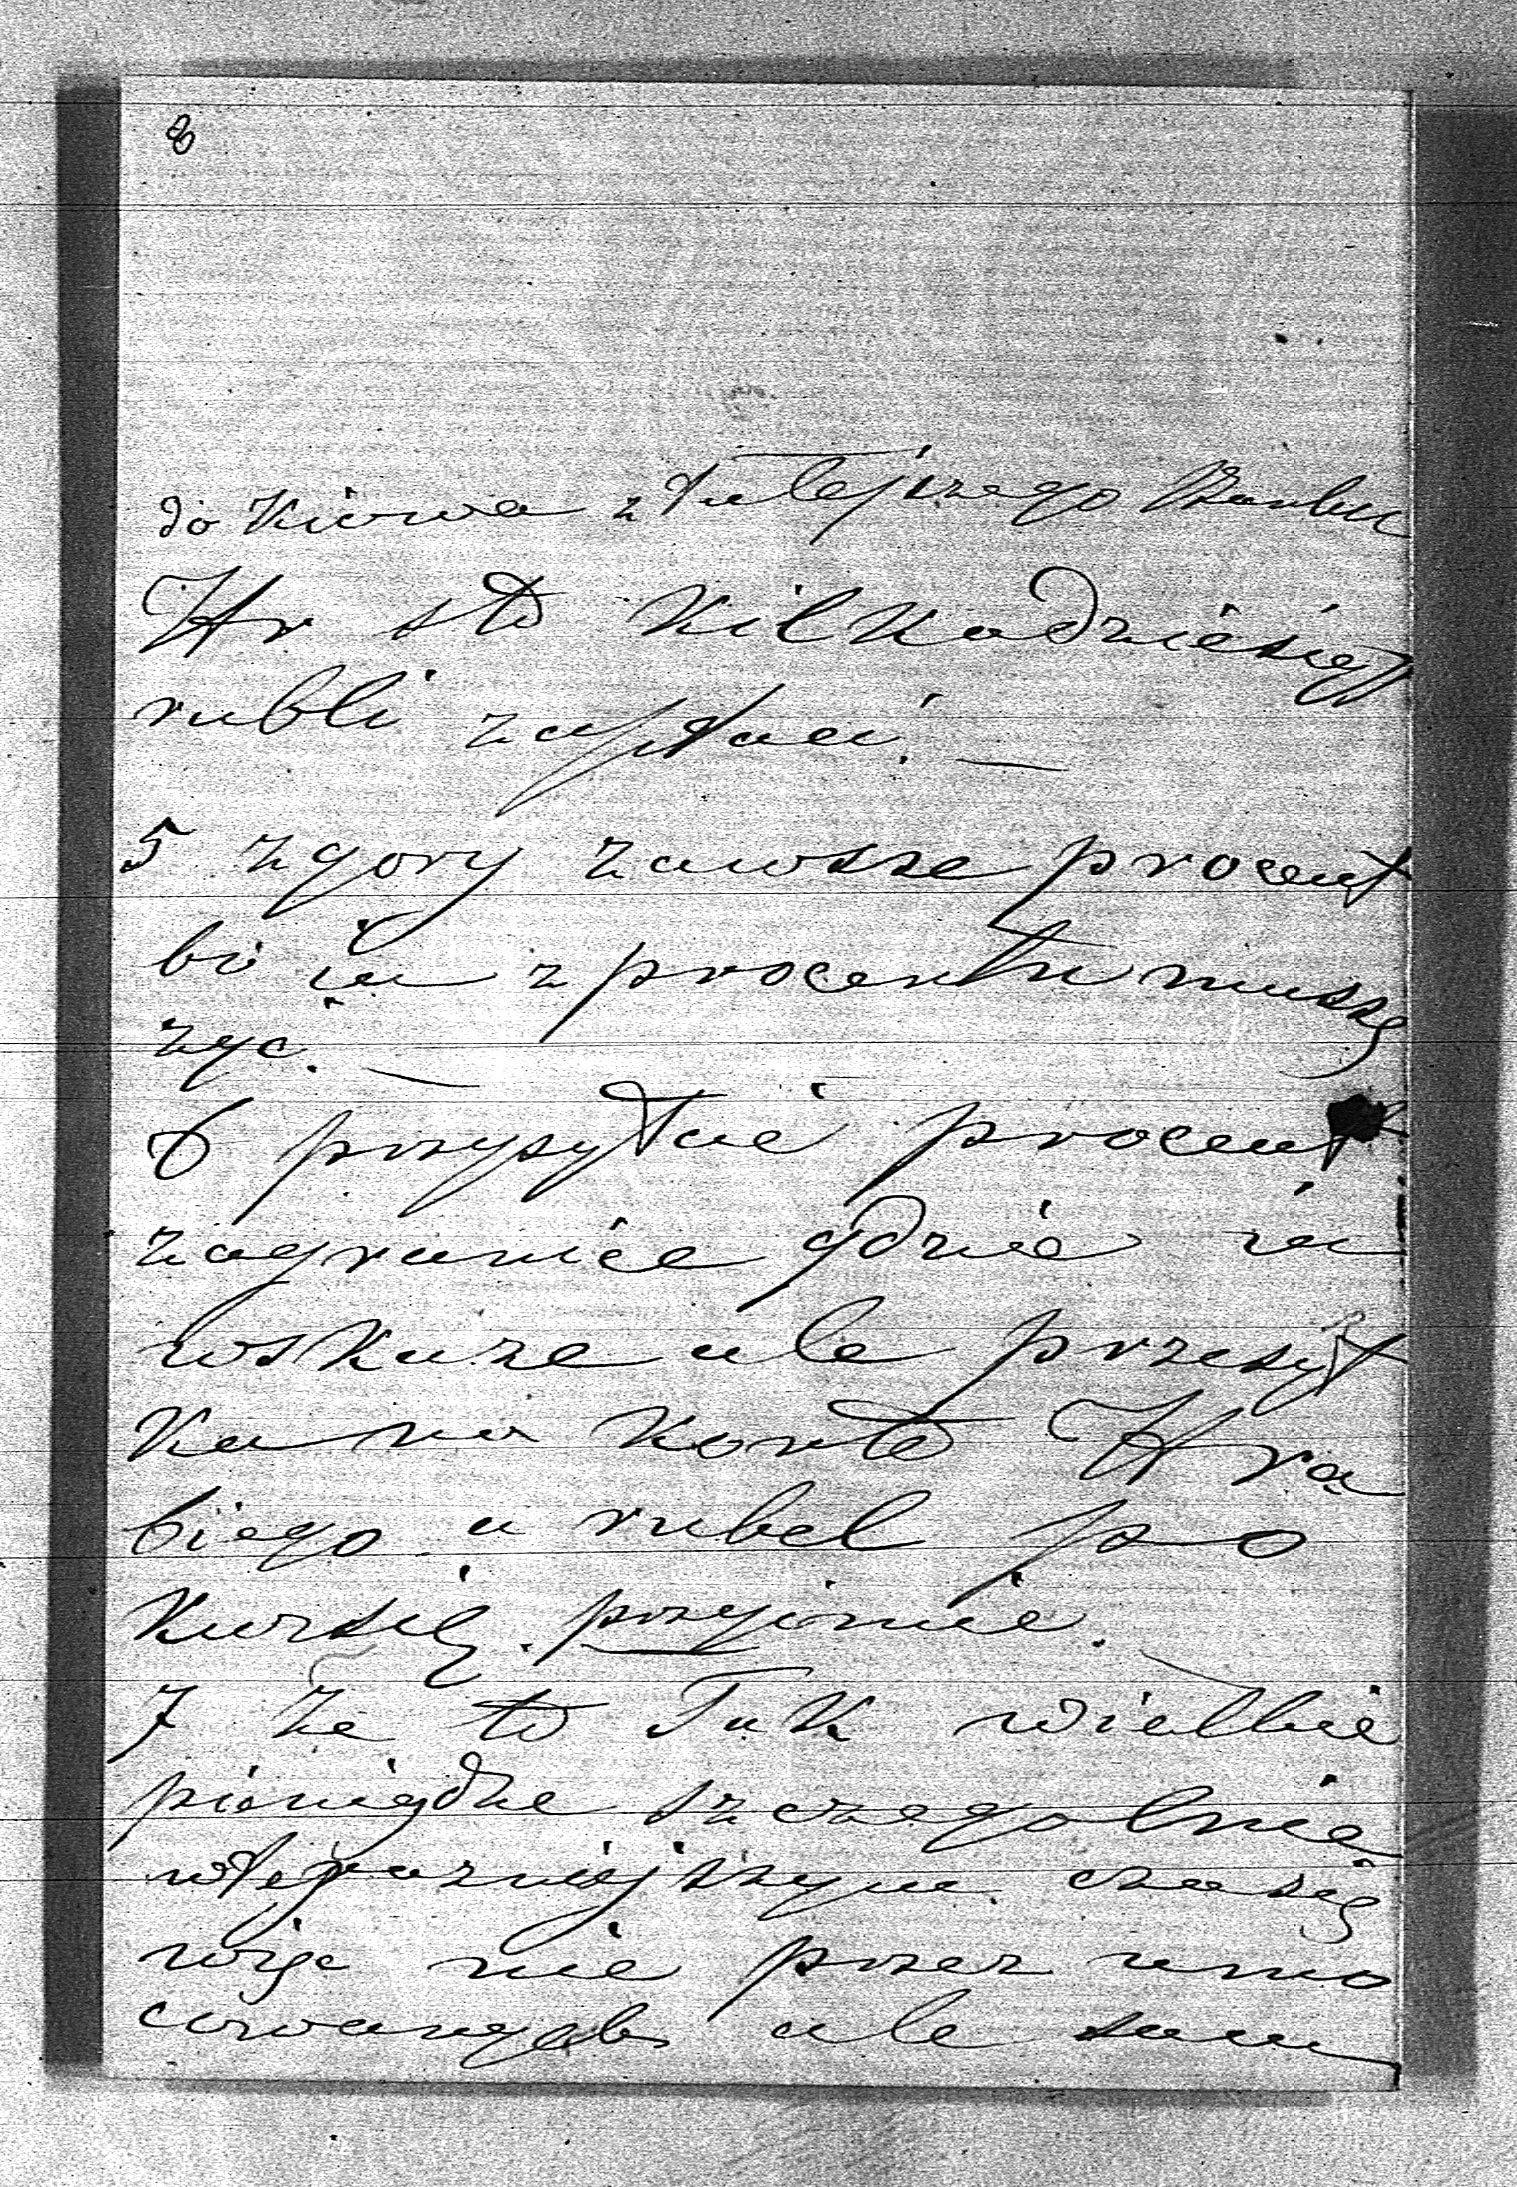 8
do Kiowa z tutejszego Banku
Hr sto kilkadziesięt
rubli zapłaci. —
5 zgory zawsze procent
bo ia z procentu muszę
zyc. —
6 przysyłać procent
zagranice gdzie ia
wskaze ale przesył
ka na konto Hra
biego a rubel po
kursie przyjmie. —
7 że to tak wielkie
pieniądze szczegolnie
w terazniejszym czasie
więc nie przez umo
cowanych ale sam